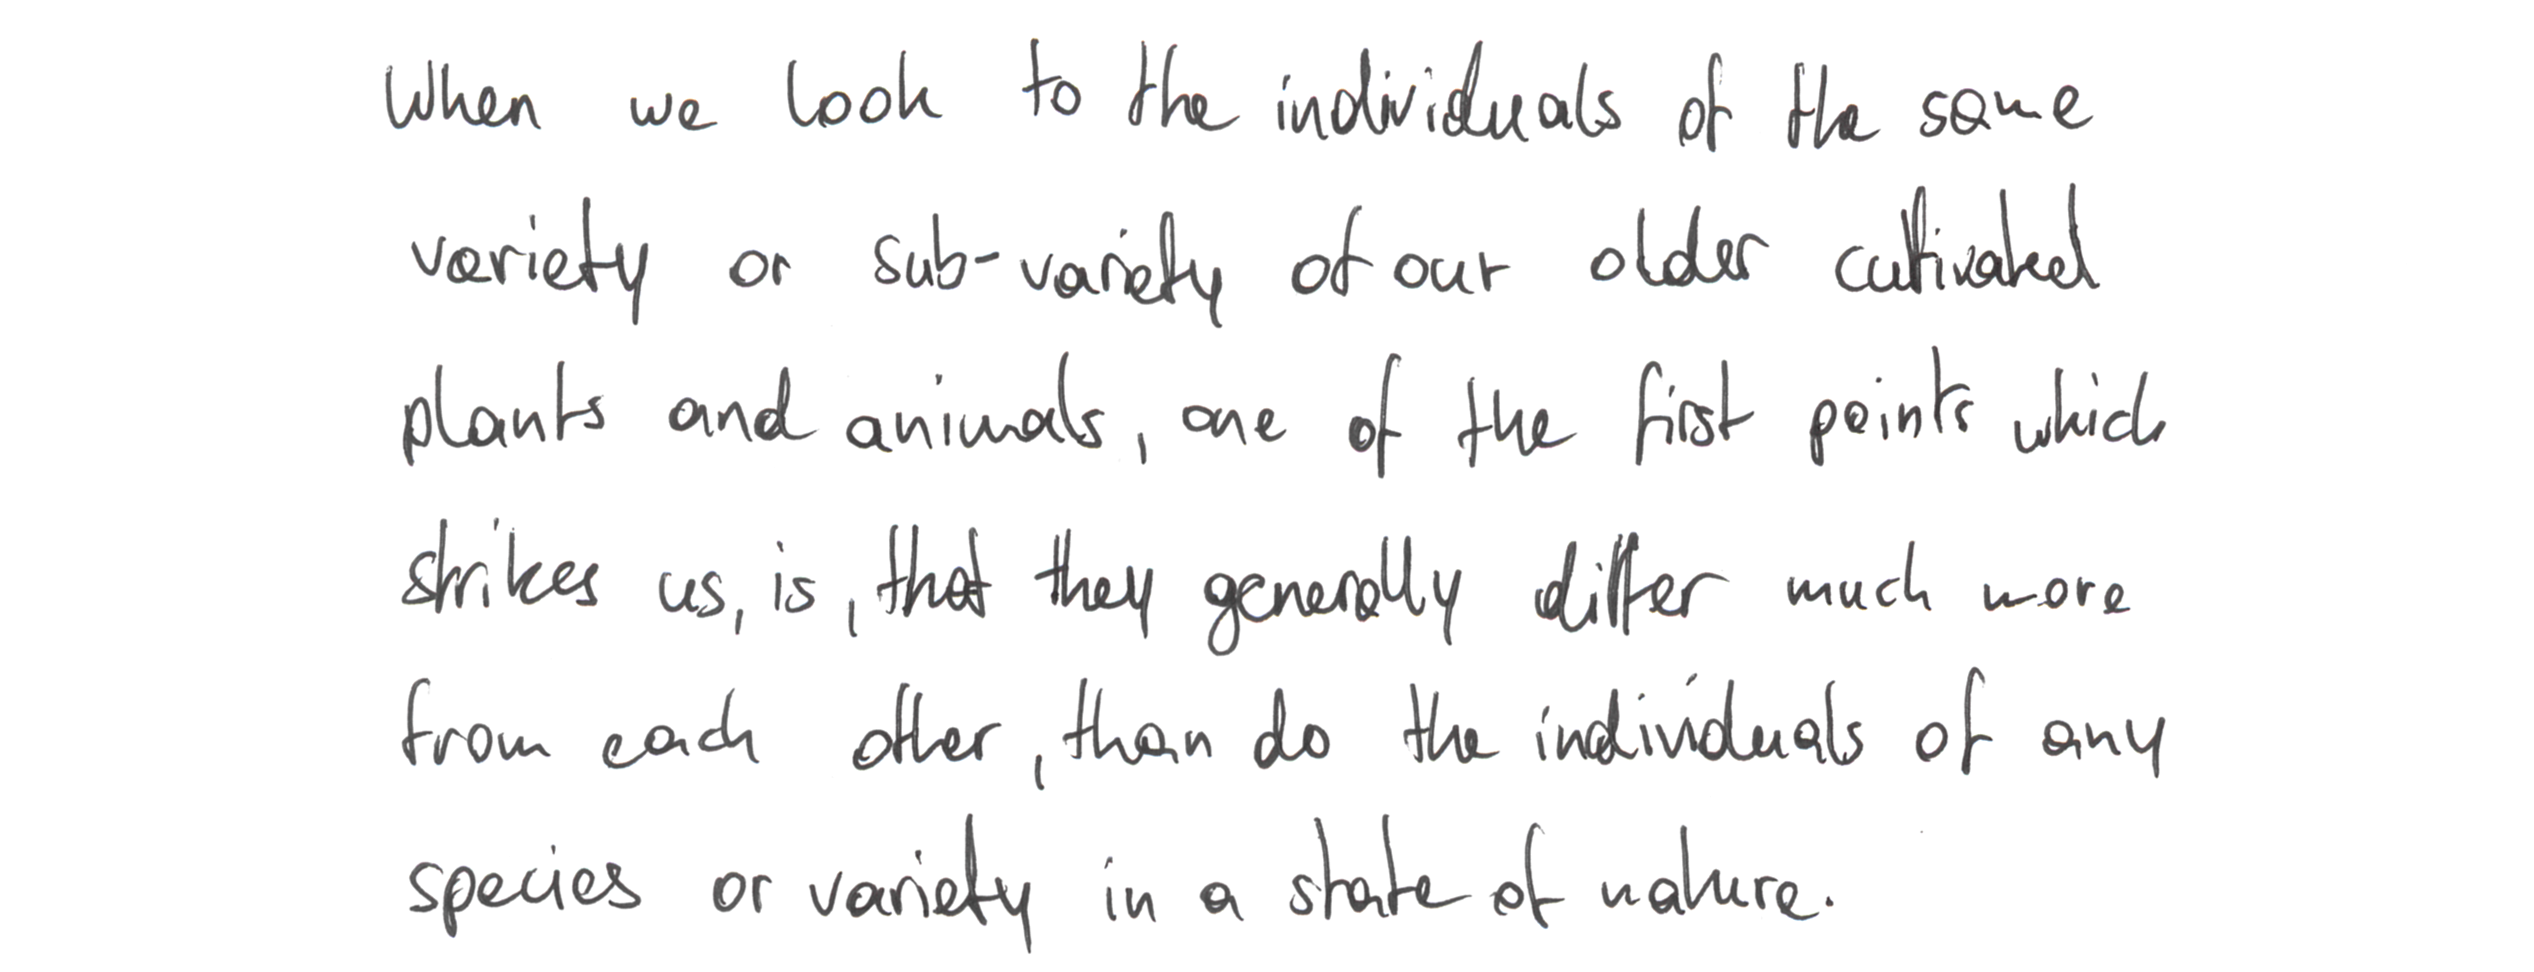 When we look to the individuals of the same
variety or sub-variety of our older cultivated
plants and animals, one of the first points which
strikes us, is, that they generally differ much more
from each other, than do the individuals of any
species or variety in a state of nature.